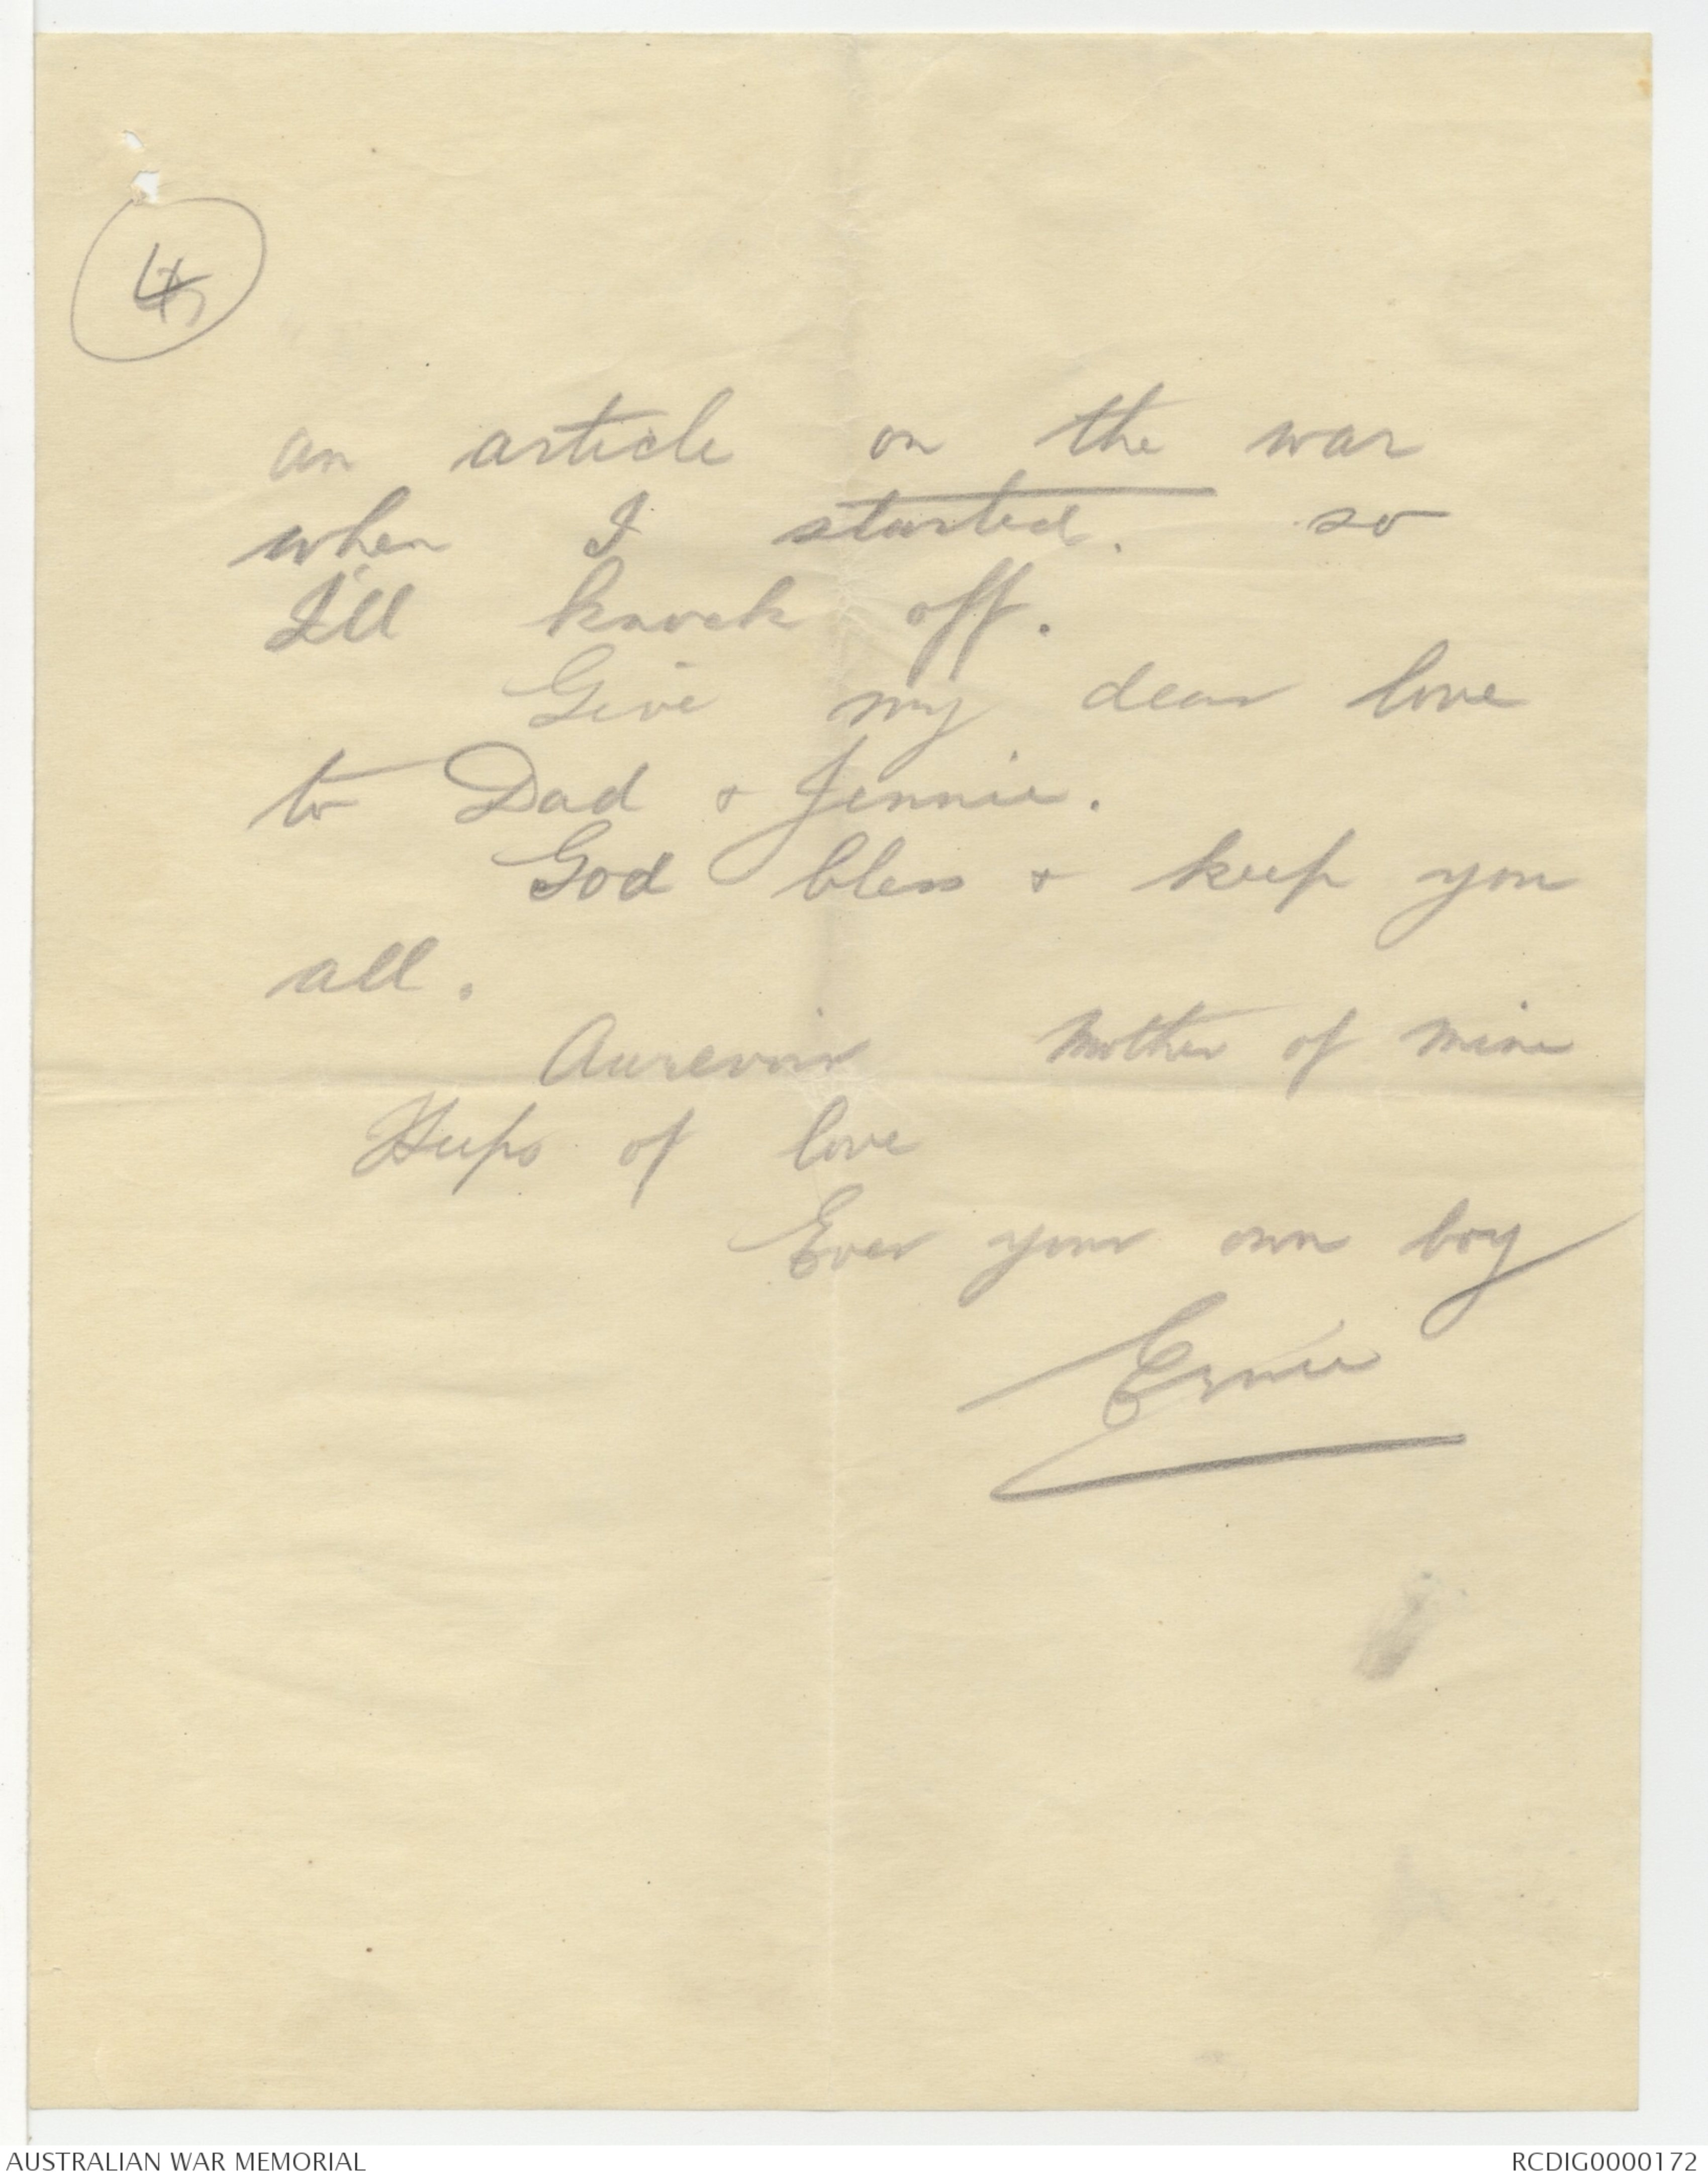 4
an article on the war
when I started. so
I'll knock off.
Give my dear love
to Dad & Jennie.
God bless & keep you
all.
Aurevoir Mother of mine
Heeps of love
Ever your own boy
Ernie
AUSTRALIAN WAR MEMORIAL
RCDIG0000172